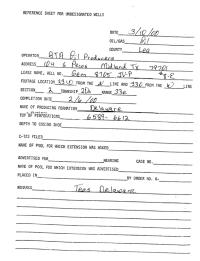 REFERENCE SHEET FOR UNDESIGNATED WELLS
DATE 3/10/00
OIL/GAS Oil
COUNTY Lea
OPERATOR BTA Oil Producers
ADDRESS 104 S Pecos Midland Tx 79701
LEASE NAME, WELL NO. Gem 8705 JV-P #8
FOOTAGE LOCATION FROM THE N LINE AND FROM THE W LINE
SECTION 2 TOWNSHIP RANGE 33e
COMPLETION DATE 2/6/00
NAME OF PRODUCING FORMATION Delaware
TOP OF PERFORATIONS 6589-6612
DEPTH TO CASING SHOE
C-123 FILED
NAME OF POOL FOR WHICH EXTENSION WAS ASKED
ADVERTISED FOR HEARING CASE NO.
NAME OF POOL FOR WHICH EXTENSION WAS ADVERTISED
PLACED IN BY ORDER NO. R-
REMARKS Teas Delaware